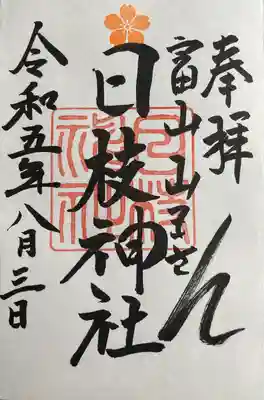 奉拝
富山山王さん
日枝神社
令和五年八月三日